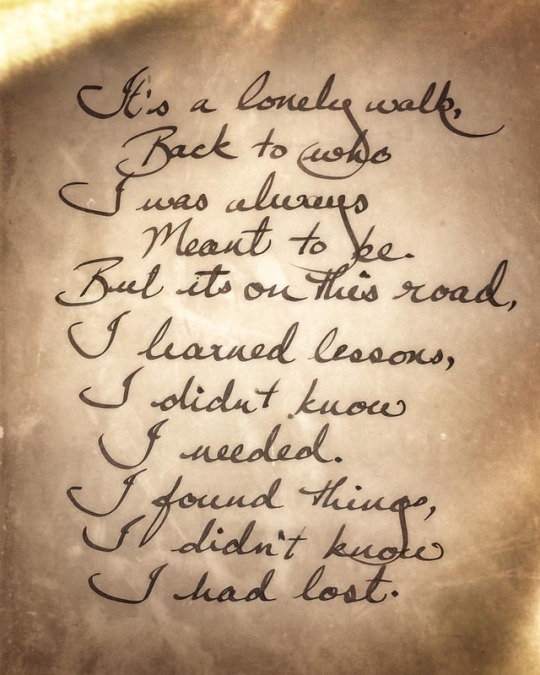 It's a lonely walk,
Back to who
I was always
Meant to be.
But its on this road,
I learned lessons,
I didn't know
I needed.
I found things,
I didn't know
I had lost.